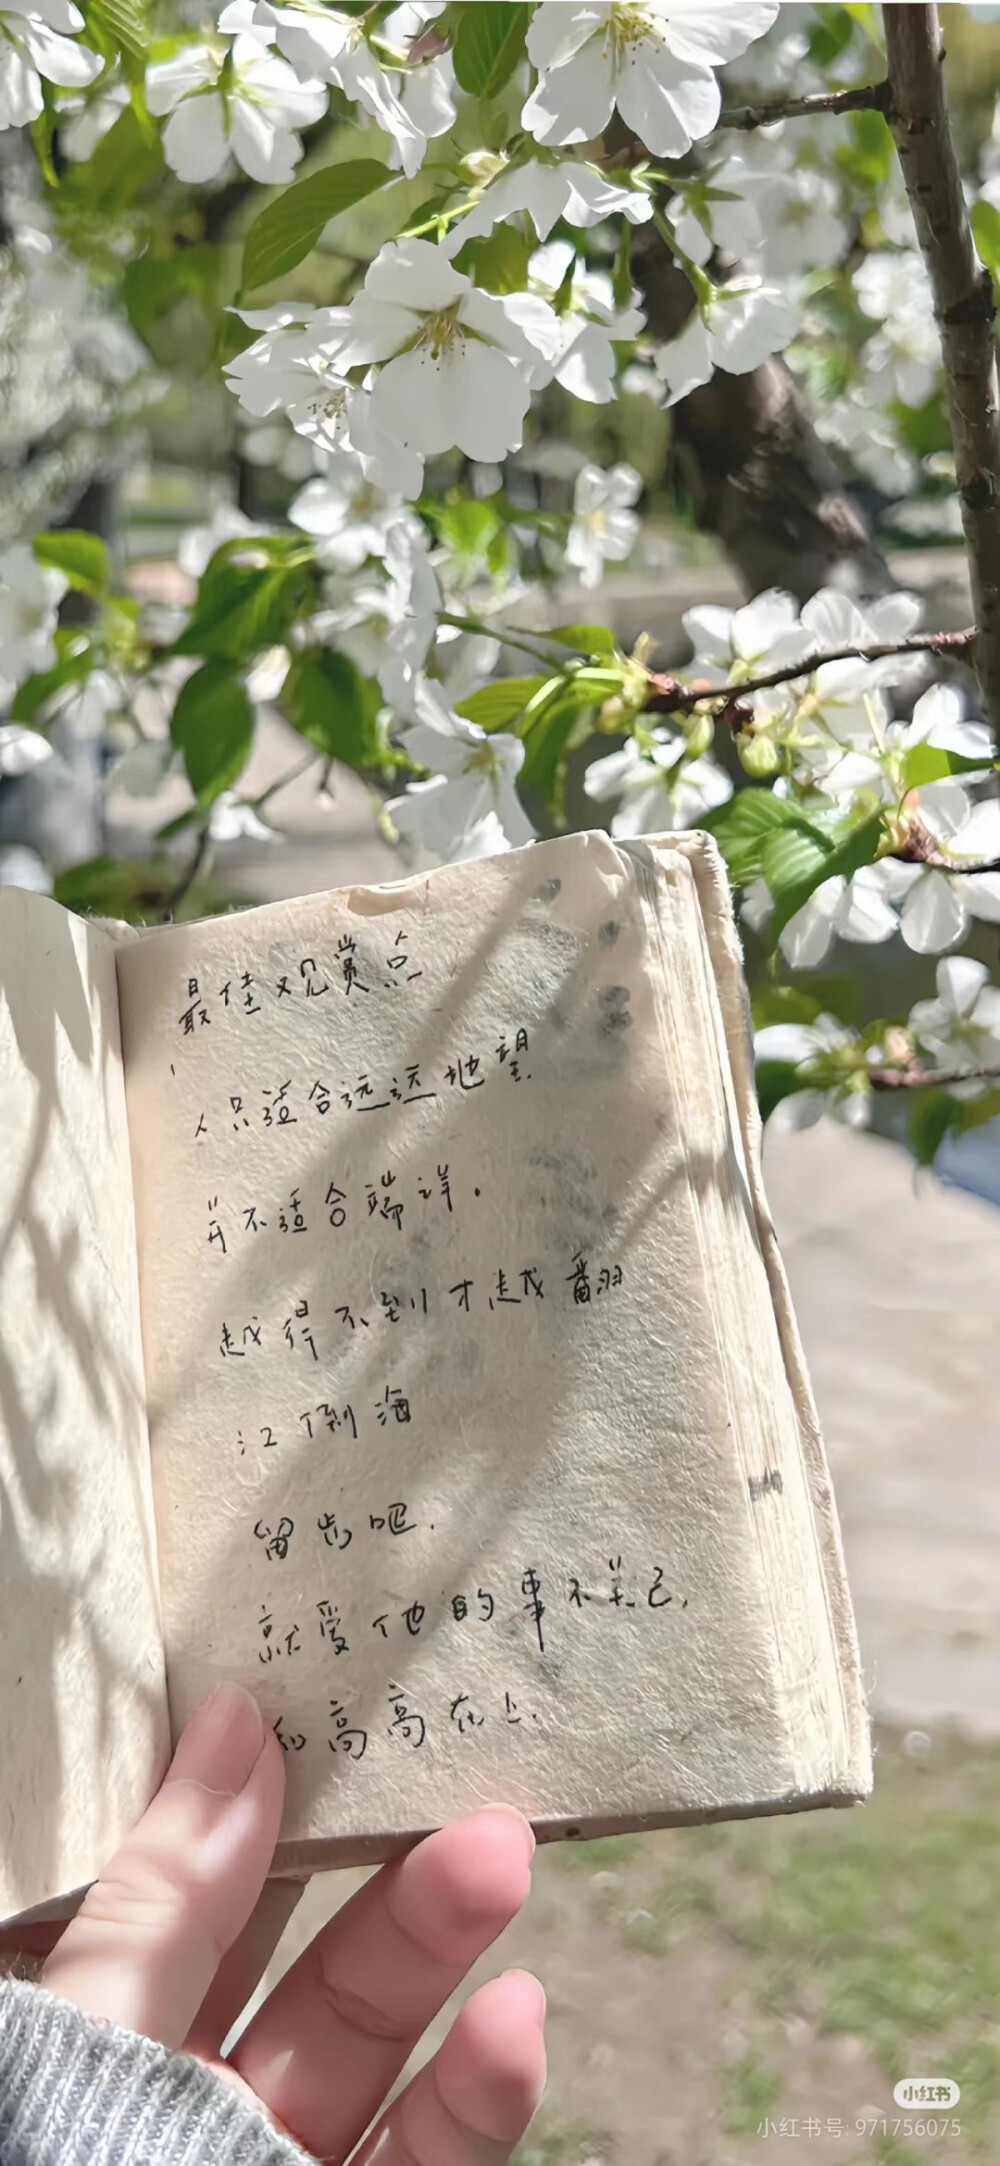 最佳观赏点
人只适合远远地望
并不适合端详。
越得不到才越翻
江倒海
留步吧.
就爱他的事不关己,
和高高在上.
小红书
小红书号: 971756075